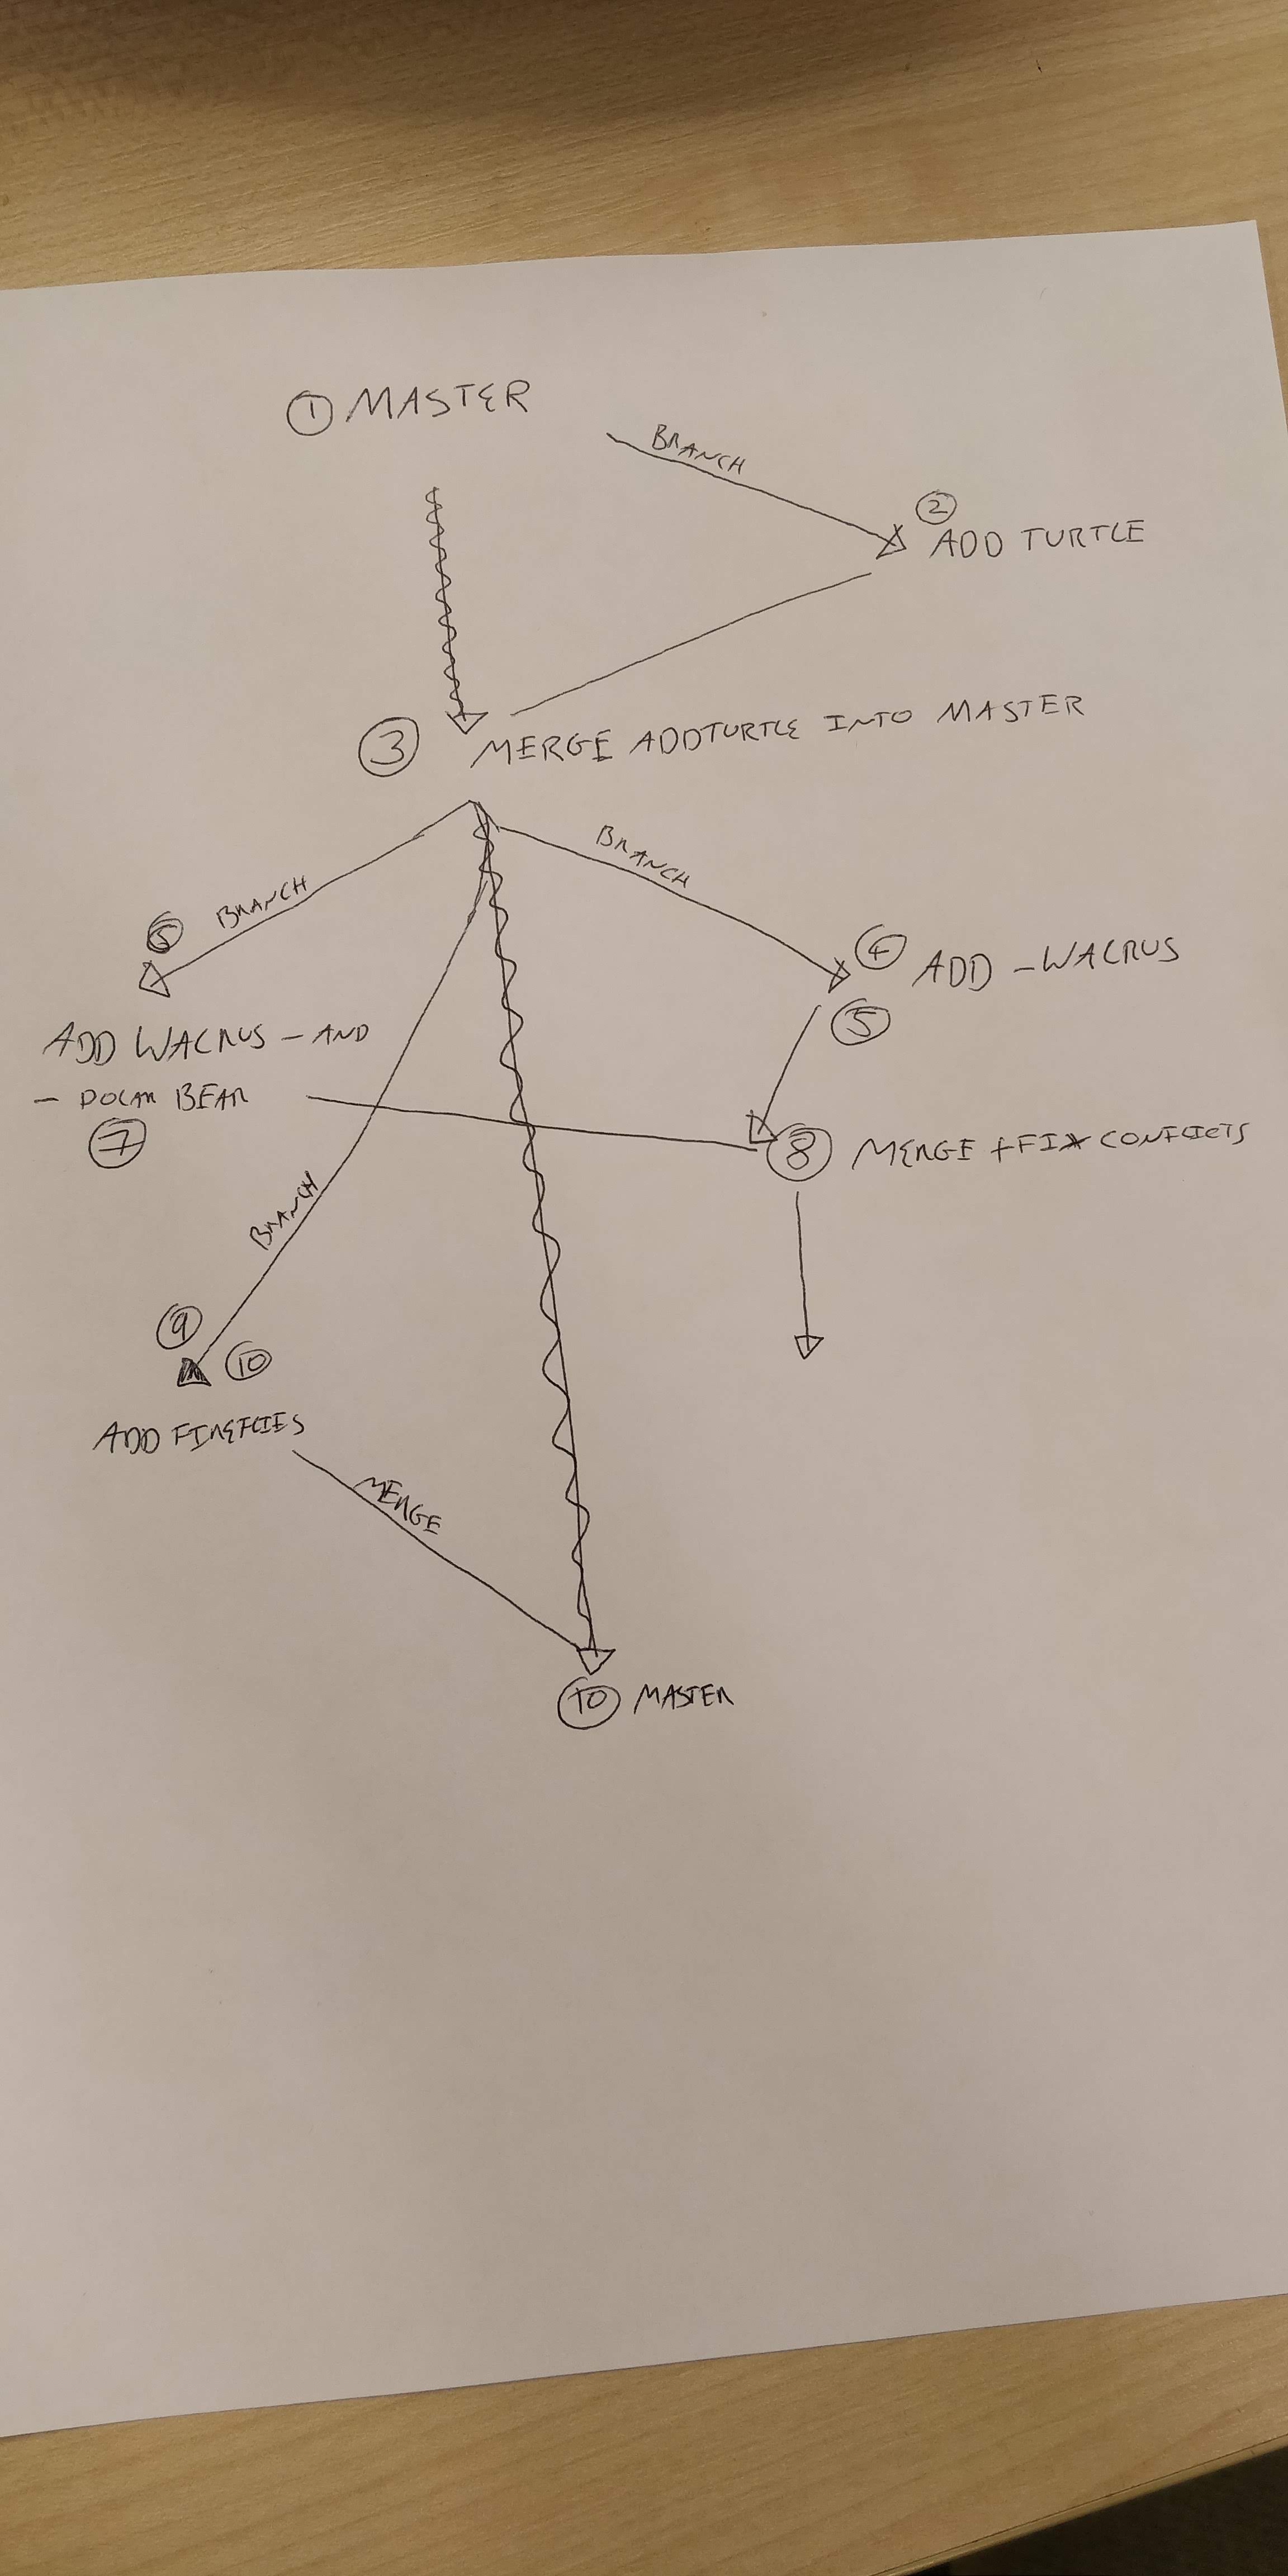 ① MASTER
BRANCH
②
ADD TURTLE
③ MERGE ADDTURTLE INTO MASTER
BRANCH
BRANCH
④ ADD -WALRUS
⑤
ADD WALRUS - AND
- POLAR BEAR
⑦
⑤
⑧ MERGE + FIX CONFLICTS
BRANCH
⑨
⑩
ADD FIREFLIES
MERGE
⑩ MASTER